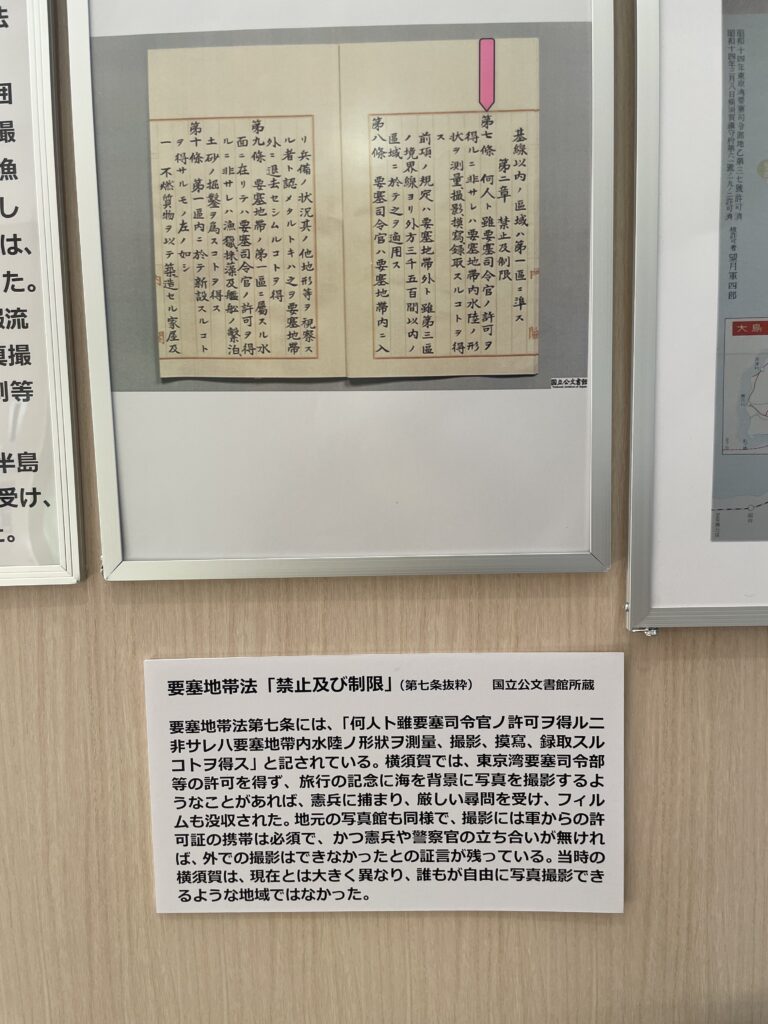 基線以内ノ區域ハ第一區ニ準ス
第二章 禁止及制限
第七條 何人ト雖要塞司令官ノ許可ヲ
得ルニ非サレハ要塞地帶内水陸ノ形
狀ヲ測量撮影摸寫錄取スルコトヲ得
ス
前項ノ規定ハ要塞地帶外ト雖第三區
ノ境界線ヨリ外方三千五百間以内ノ
區域ニ於テ之ヲ適用ス
第八條 要塞司令官ハ要塞地帶内ニ入
リ兵備ノ狀況其ノ他地形等ヲ視察ス
ル者ト認メタルトキハ之ヲ要塞地帶
外ニ退去セシムルコトヲ得
第九條 要塞地帶ノ第一區ニ屬スル水
面ニ在リテハ要塞司令官ノ許可ヲ得
ルニ非サレハ漁獵採藻及艦船ノ繫泊
土砂ノ掘鑿ヲ爲スコトヲ得ス
第十條 第一區内ニ於テ新設スルコト
ヲ得サルモノ左ノ如シ
一 不燃質物ヲ以テ築造セル家屋及
国立公文書館
法
囲
撮
漁
し
は、
た。
報流
真撮
削等
半島
受け、
大島
望月軍四郎
要塞地帯法「禁止及び制限」（第七条抜粋） 国立公文書館所蔵
要塞地帯法第七条には、「何人ト雖要塞司令官ノ許可ヲ得ルニ
非サレハ要塞地帶内水陸ノ形狀ヲ測量、撮影、摸寫、録取スル
コトヲ得ス」と記されている。横須賀では、東京湾要塞司令部
等の許可を得ず、旅行の記念に海を背景に写真を撮影するよ
うなことがあれば、憲兵に捕まり、厳しい尋問を受け、フィル
ムも没収された。地元の写真館も同様で、撮影には軍からの許
可証の携帯は必須で、かつ憲兵や警察官の立ち合いが無けれ
ば、外での撮影はできなかったとの証言が残っている。当時の
横須賀は、現在とは大きく異なり、誰もが自由に写真撮影でき
るような地域ではなかった。